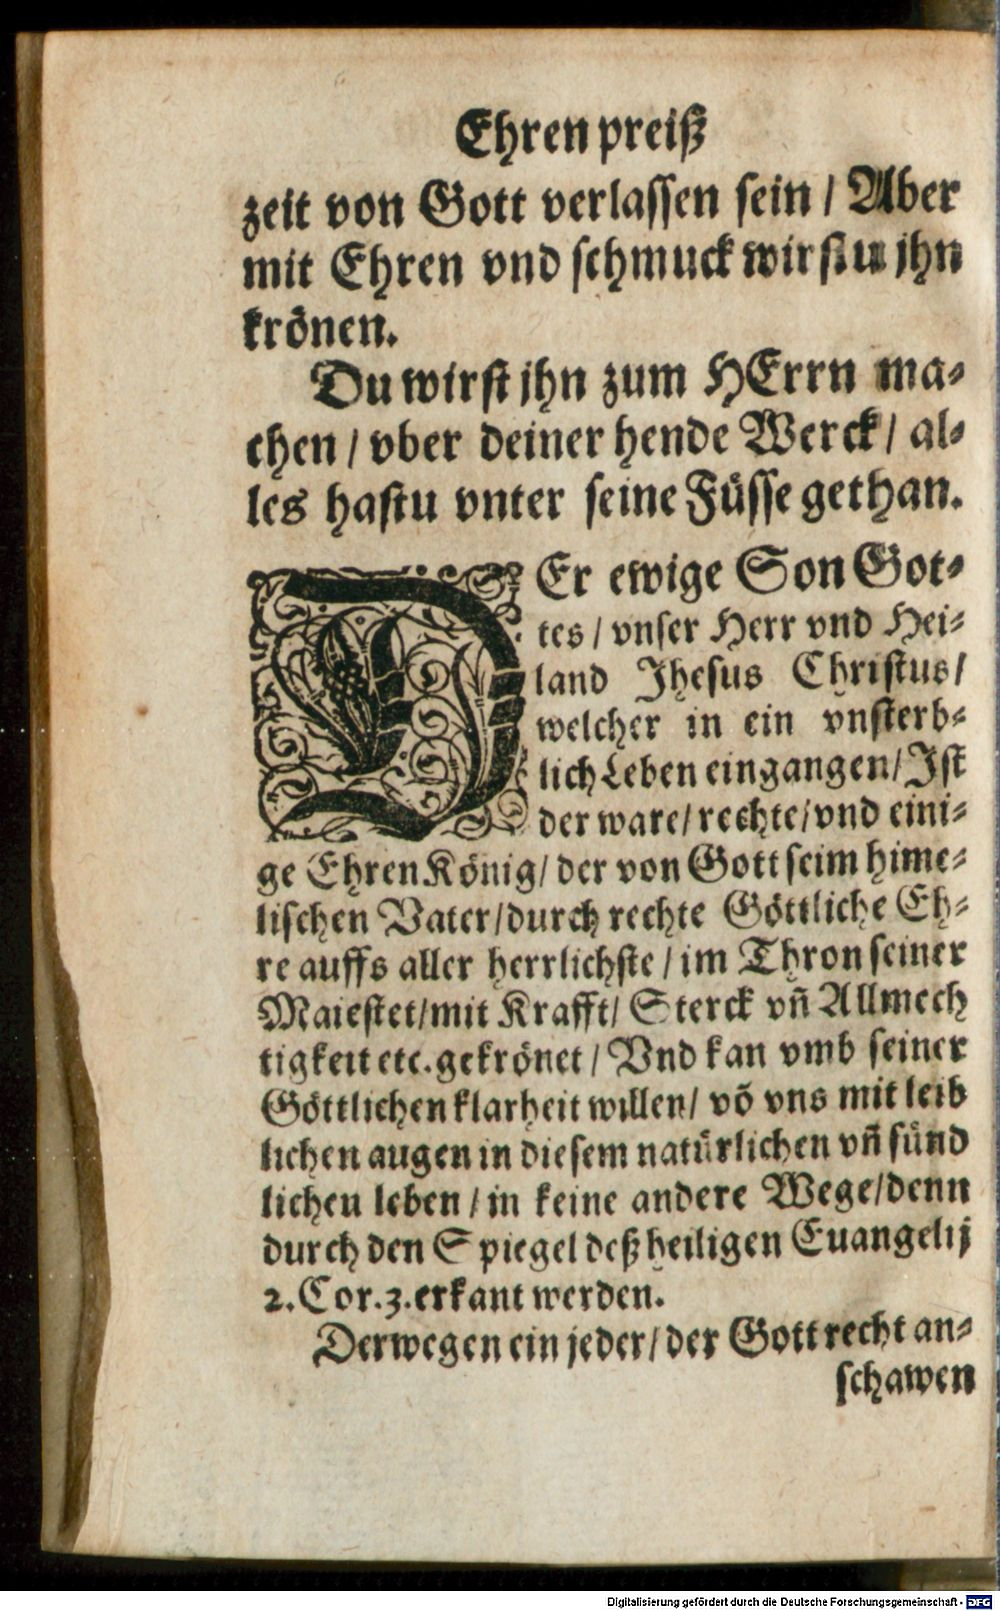 Ehren preiß
zeit von Gott verlassen sein / Aber
mit Ehren vnd schmuck wirstu jhn
krönen.
Du wirst jhn zum HErrn ma⸗
chen / vber deiner hende Werck / al⸗
les hastu vnter seine Füsse gethan.
DEr ewige Son Got⸗
tes / vnser Herr vnd Hei⸗
land Jhesus Christus /
welcher in ein vnsterb⸗
lich Leben eingangen / Ist
der ware / rechte / vnd eini⸗
ge Ehren König / der von Gott seim hime⸗
lischen Vater / durch rechte Göttliche Eh⸗
re auffs aller herrlichste / im Thron seiner
Maiestet / mit Krafft / Sterck vñ Allmech
tigkeit etc. gekrönet / Vnd kan vmb seiner
Göttlichen klarheit willen / võ vns mit leib
lichen augen in diesem natürlichen vñ sünd
lichen leben / in keine andere Wege / denn
durch den Spiegel deß heiligen Euangelij
2. Cor. 3. erkant werden.
Derwegen ein jeder / der Gott recht an⸗
schawen
Digitalisierung gefördert durch die Deutsche Forschungsgemeinschaft - DFG